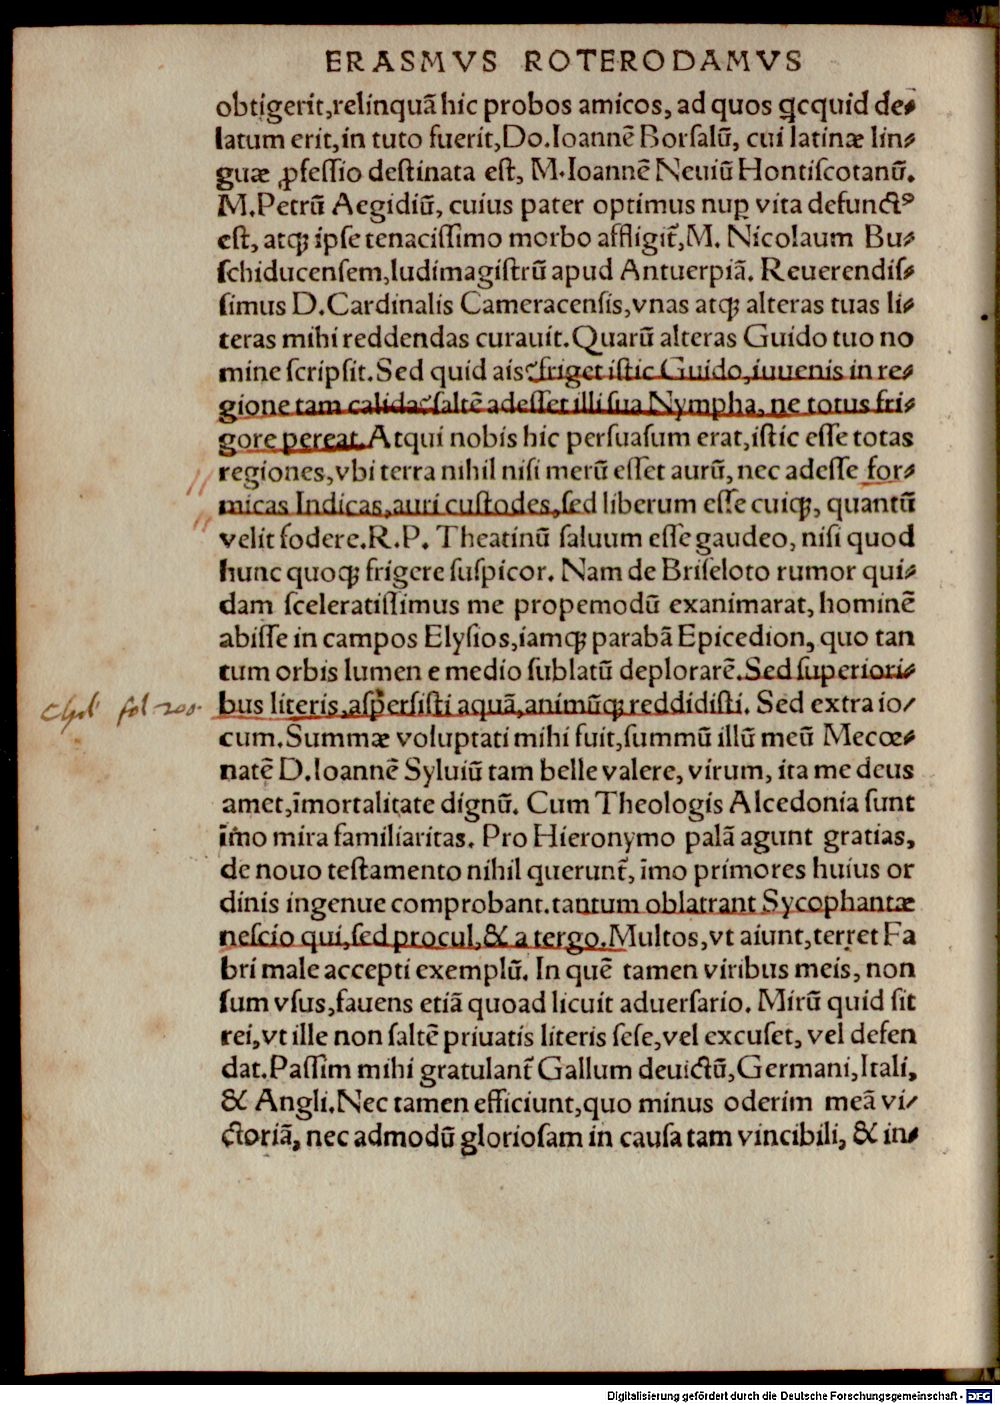 ERASMVS ROTERODAMVS
obtigerit,relinquā hic probos amicos, ad quos qcquid de⸗
latum erit,in tuto fuerit,Do.Ioannē Borsalū, cui latinæ lin⸗
guæ ꝓfessio destinata est, M.Ioannē Neuiū Hontiscotanū.
M.Petrū Aegidiū, cuius pater optimus nuꝑ vita defunctꝰ
est, atqꝫ ipse tenacissimo morbo affligit᷑,M. Nicolaum Bu⸗
schiducensem,ludimagistrū apud Antuerpiā. Reuerendis⸗
simus D.Cardinalis Cameracensis,vnas atqꝫ alteras tuas li⸗
teras mihi reddendas curauit.Quarū alteras Guido tuo no
mine scripsit.Sed quid ais?friget istic Guido,iuuenis in re⸗
gione tam calida?saltē adesset illi sua Nympha, ne totus fri⸗
gore pereat.Atqui nobis hic persuasum erat,istic esse totas
regiones,vbi terra nihil nisi merū esset aurū, nec adesse for⸗
micas Indicas,auri custodes,sed liberum esse cuiqꝫ, quantū
velit fodere.R.P. Theatinū saluum esse gaudeo, nisi quod
hunc quoqꝫ frigere suspicor. Nam de Briseloto rumor qui⸗
dam sceleratissimus me propemodū exanimarat, hominē
abisse in campos Elysios,iamqꝫ parabā Epicedion, quo tan
tum orbis lumen e medio sublatū deplorarē.Sed superiori⸗
bus literis,aspersisti aquā,animūqꝫ reddidisti. Sed extra io/
cum.Summæ voluptati mihi fuit,summū illū meū Mecœ⸗
natē D.Ioannē Syluiū tam belle valere, virum, ita me deus
amet,īmortalitate dignū. Cum Theologis Alcedonia sunt
īmo mira familiaritas. Pro Hieronymo palā agunt gratias,
de nouo testamento nihil querunt᷑, īmo primores huius or
dinis ingenue comprobant.tantum oblatrant Sycophantæ
nescio qui,sed procul,& a tergo.Multos,vt aiunt,terret Fa
bri male accepti exemplū. In quē tamen viribus meis, non
sum vsus,fauens etiā quoad licuit aduersario. Mirū quid sit
rei,vt ille non saltē priuatis literis sese,vel excuset, vel defen
dat.Passim mihi gratulant᷑ Gallum deuictū,Germani,Itali,
& Angli.Nec tamen efficiunt,quo minus oderim meā vi/
ctoriā, nec admodū gloriosam in causa tam vincibili, & in⸗
fol 200.
Digitalisierung gefördert durch die Deutsche Forschungsgemeinschaft - DFG